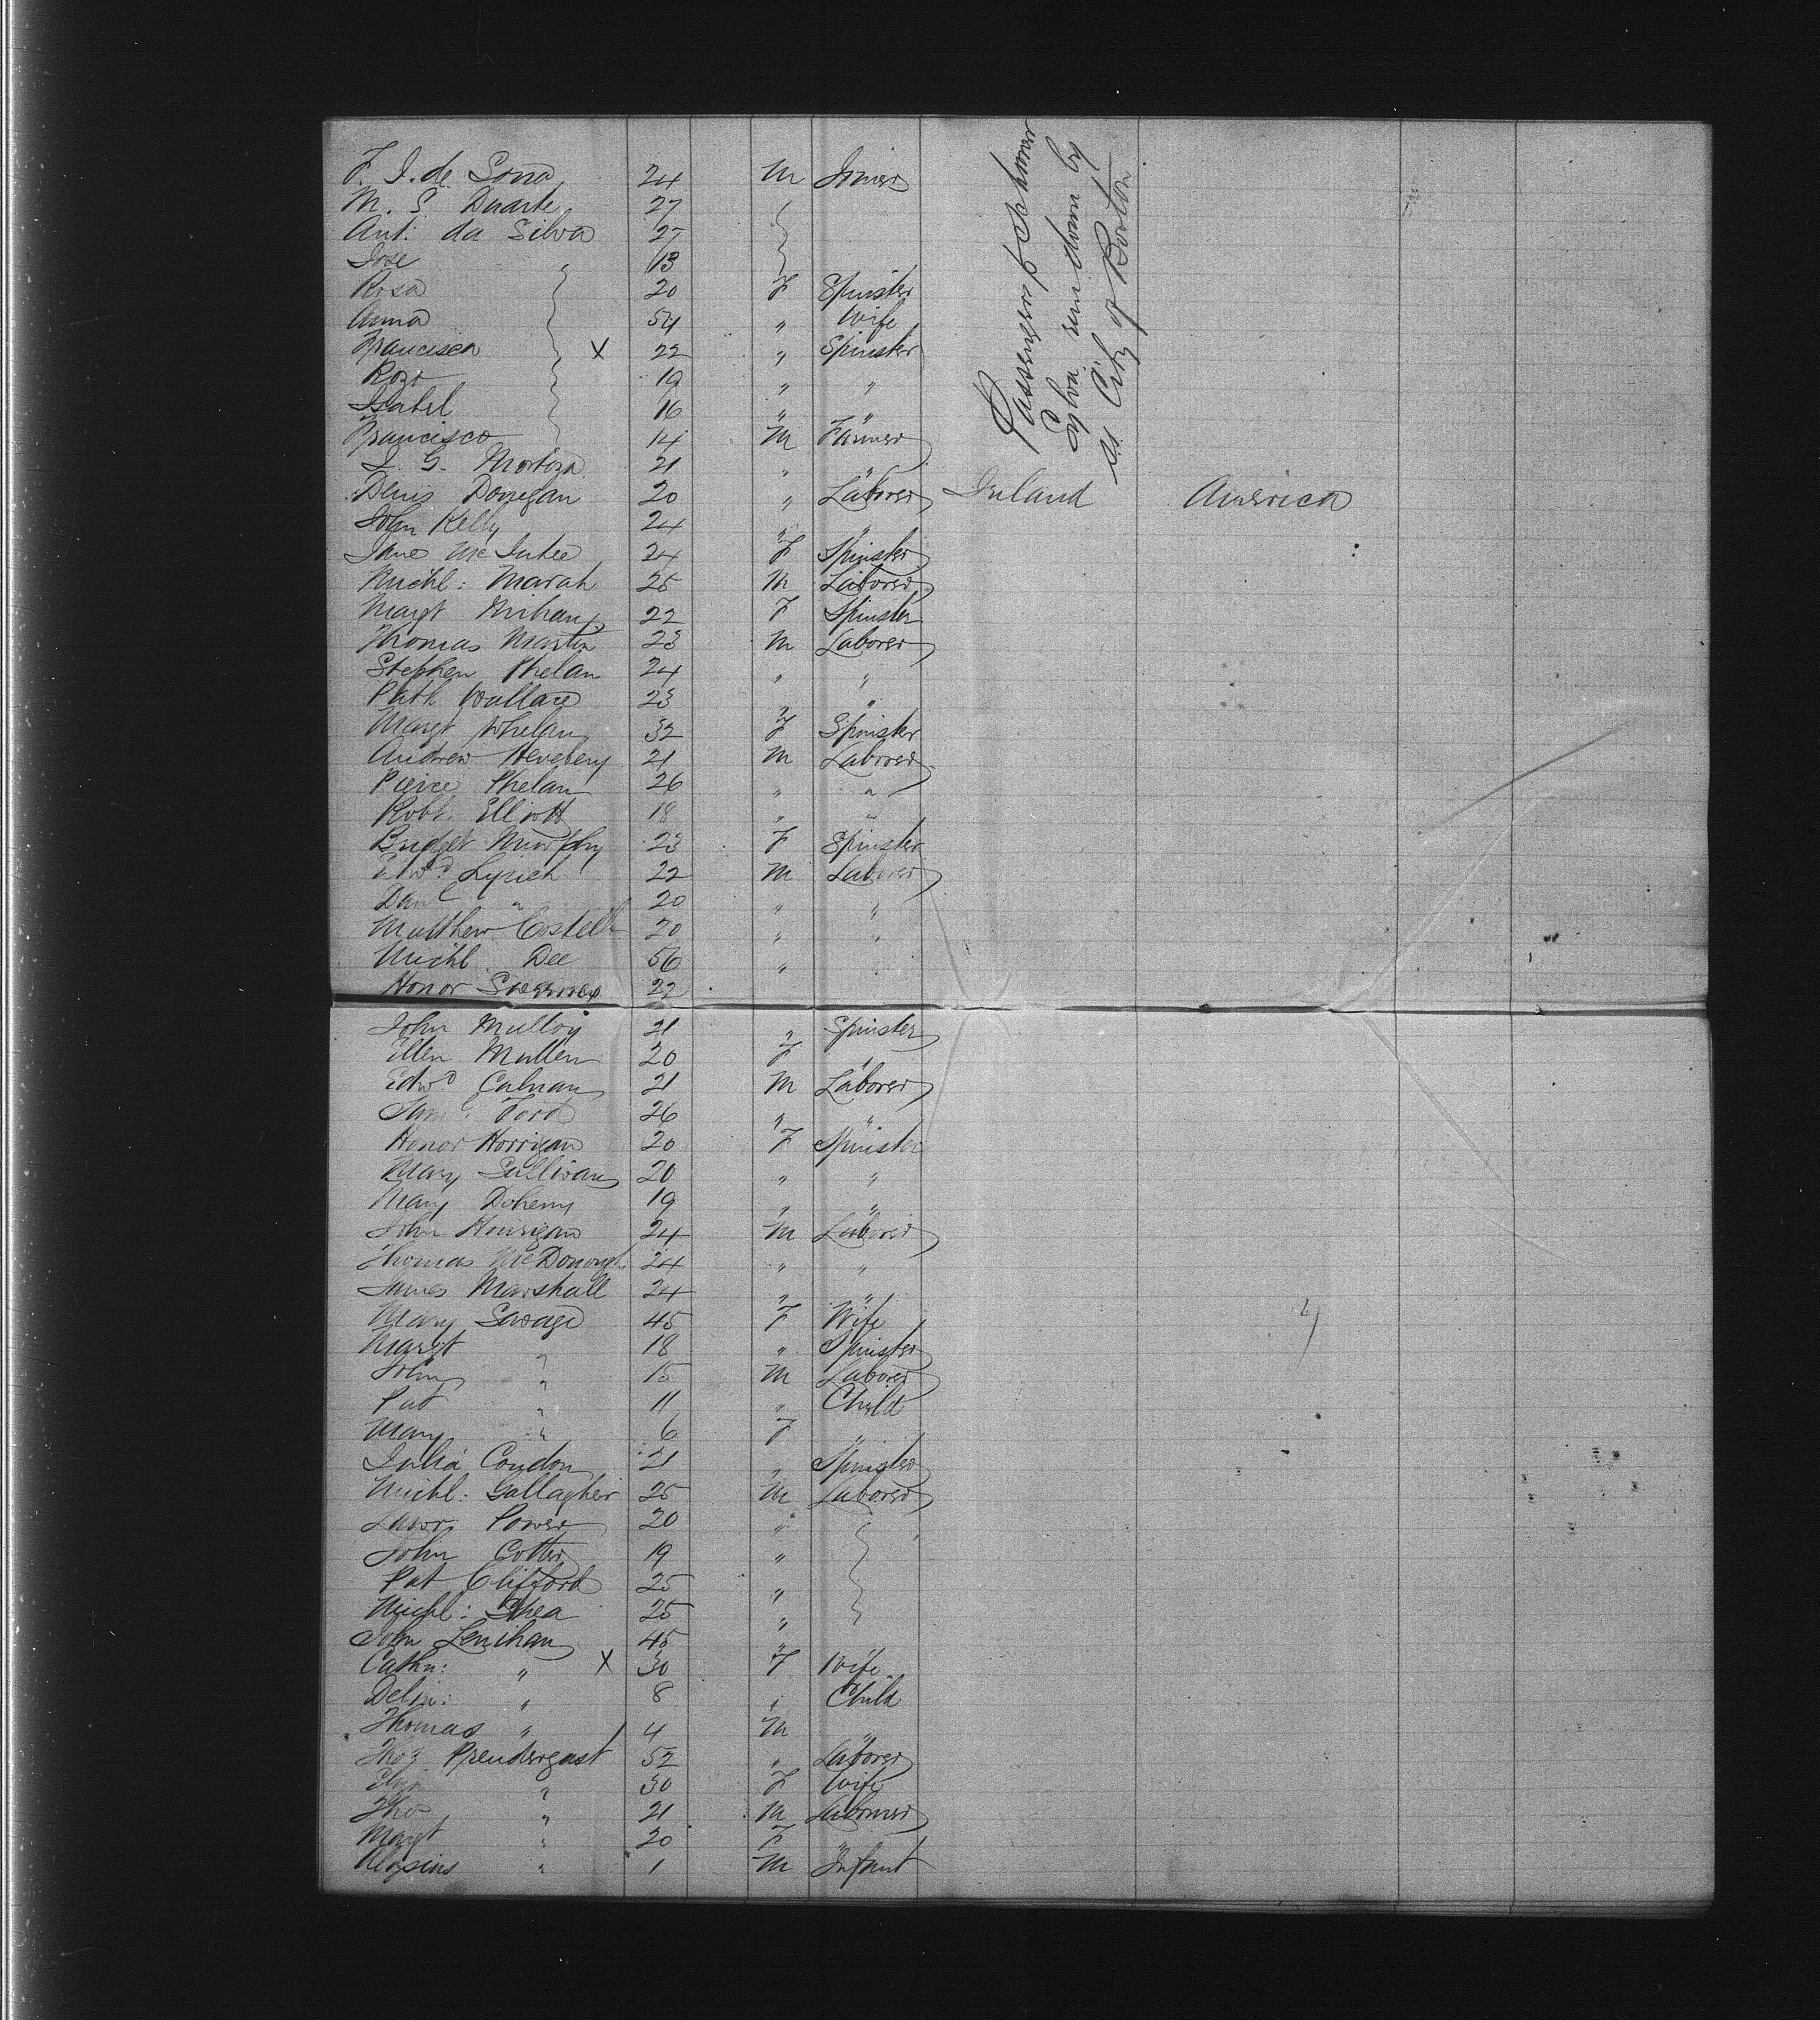 F. J. de Sona 24 M Joiner
M. S. Duarte 27 "
Ant: da Silva 27 "
Jose " 13 "
Rosa " 20 F Spinster
Anna " 54 " Wife
Francisca " X 22 " Spinster
Roza " 19 " "
Isabel " 16 " "
Francisco " 14 M Farmer
J. G. Mortoza 21 " "
Denis Donegan 20 " Laborer Ireland America
John Kelly 24 " "
Jane McIntee 24 F Spinster
Michl: Marah 25 M Laborer
Margt 22 F Spinster
Thomas Martin 23 M Laborer
Stephen Phelan 24 " "
Patk Wallace 23 "
Margt Whelan 32 F Spinster
Andrew Hevebery 21 M Laborer
Pierce Phelan 26 " "
Robt. Elliott 18 " "
Bridget Murphy 23 F Spinster
Edwd Lynch 22 M Laborer
Danl " 20 " "
Matthew Costello 20 " "
Michl Dee 56 " "
Honor 22
John Mulloy 21 " Spinster
Ellen Mullen 20 F "
Edwd Calnan 21 M Laborer
Saml. Ford 26 " "
Honor Horrigan 20 F Spinster
Mary Sullivan 20 " "
Mary Doheny 19 " "
John Hourigan 24 M Laborer
Thomas McDonough 24 " "
James Marshall 24 " "
Mary Savage 45 F Wife
Margt " 18 " Spinster
John " 15 M Laborer
Pat " 11 " Child
Mary " 6 F "
Julia Condon 21 " Spinster
Michl: Gallagher 25 M Laborer
Lawr: Power 20 "
John Cotter 19 "
Pat Clifford 25 "
Michl: Shea 25 "
John Lenihan 45 " "
Cathn: " X 30 F Wife
Delia: " 8 " Child
Thomas " 4 M "
Thos Prendergast 52 " Laborer
" 30 F Wife
Thos " 21 M Laborer
Margt " 20 F "
Aloysius " 1 M Infant
Passengers of Schooner
Sylva run down by
ss City of Boston